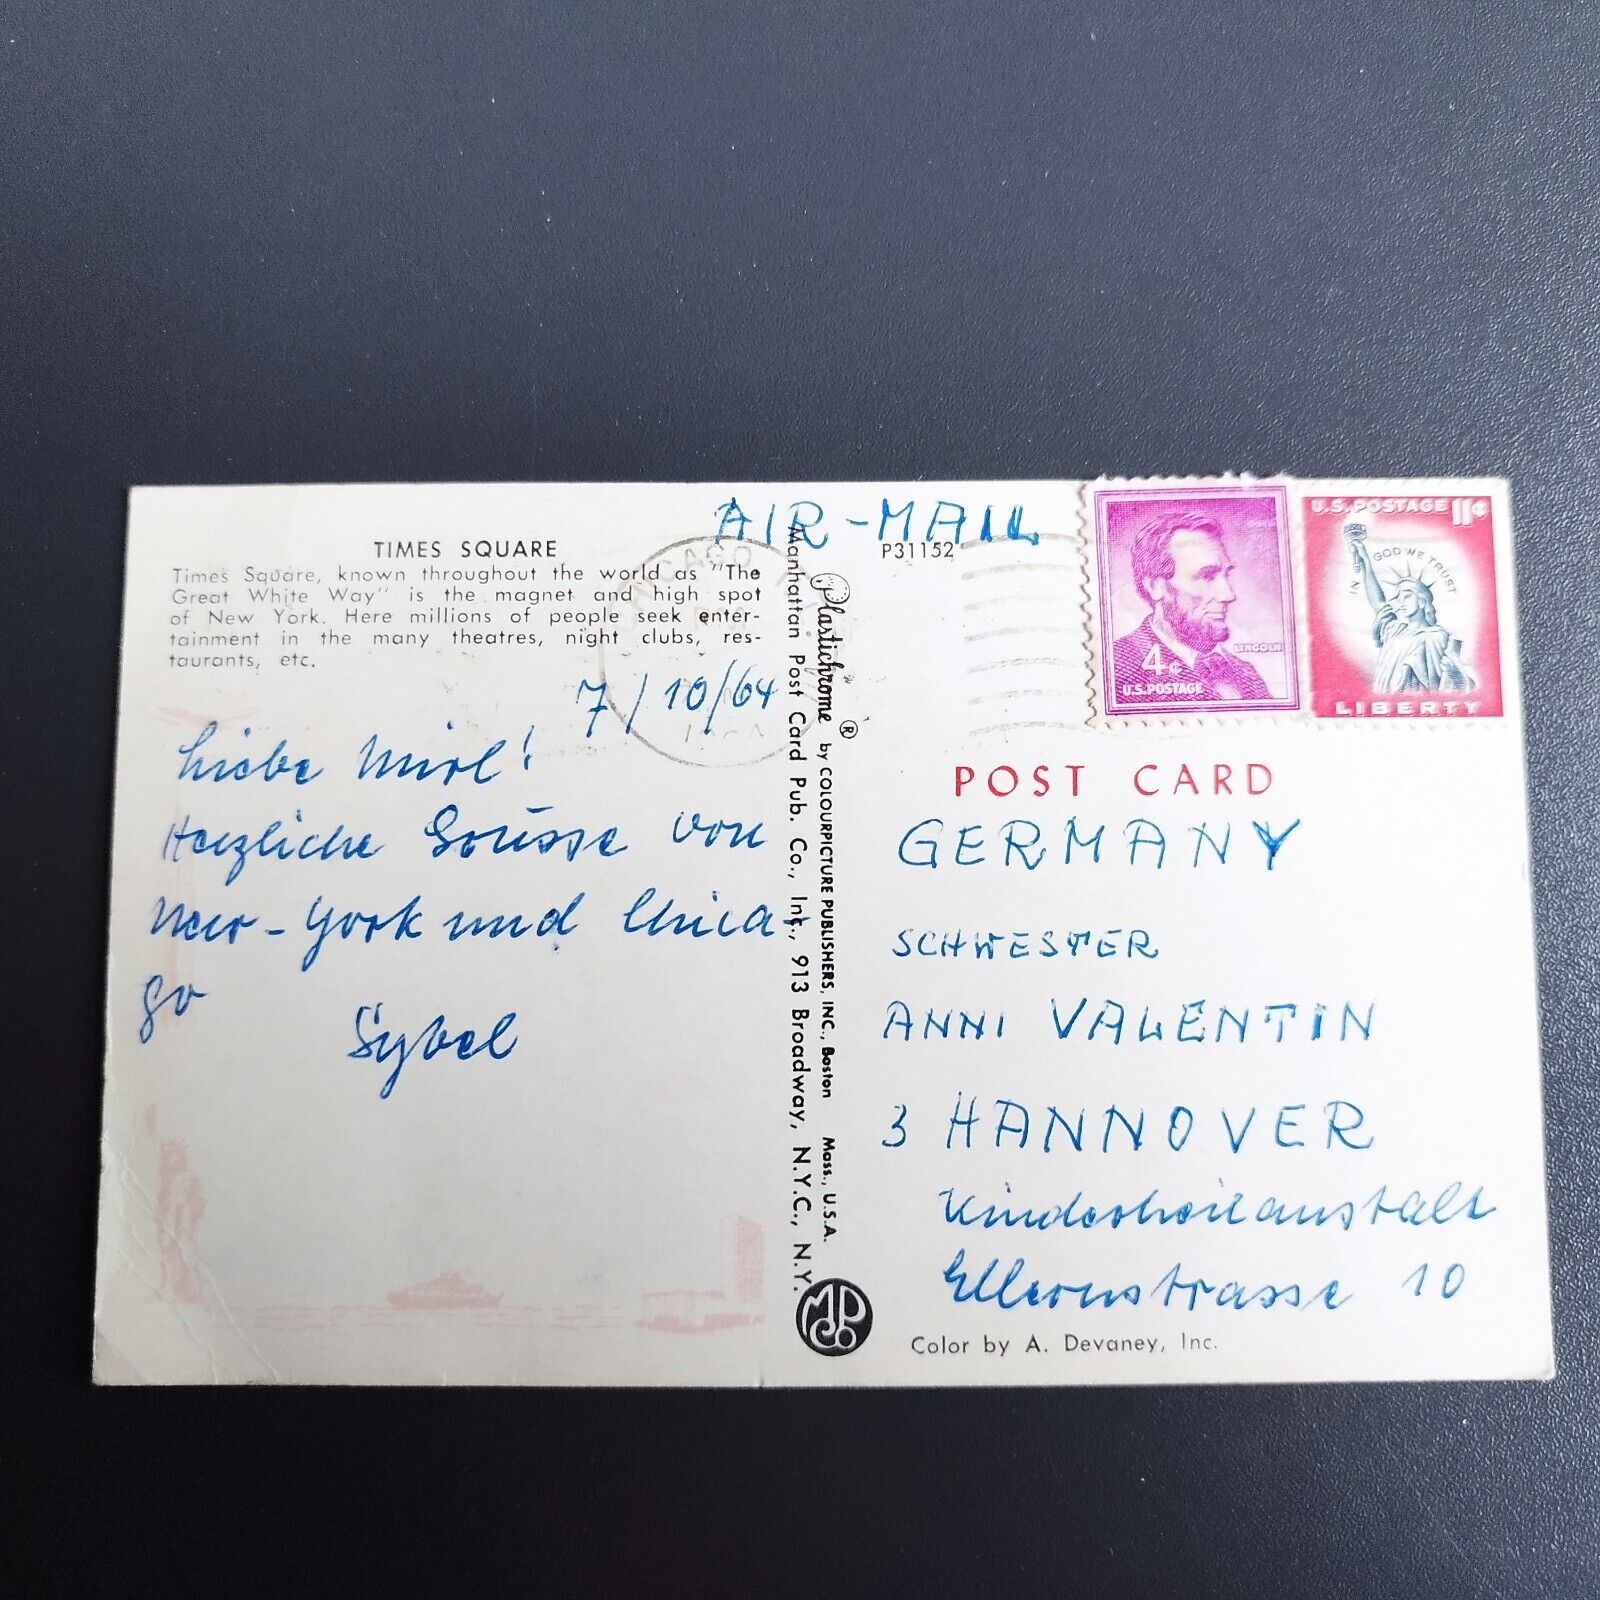 AIR-MAIL
TIMES SQUARE
Times Square, known throughout the world as "The
Great White Way" is the magnet and high spot
of New York. Here millions of people seek enter-
tainment in the many theatres, night clubs, res-
taurants, etc.
7/10/64
Liebe Mirl!
Herzliche Grüsse von
New-York und Chica-
go
Sybel
P31152
Plastichrome ® by COLOURPICTURE PUBLISHERS, INC., Boston Mass., U.S.A.
Manhattan Post Card Pub. Co., Inc., 913 Broadway, N.Y.C., N.Y.
4¢
LINCOLN
U.S. POSTAGE
U.S. POSTAGE 11¢
IN GOD WE TRUST
LIBERTY
POST CARD
GERMANY
SCHWESTER
ANNI VALENTIN
3 HANNOVER
Kinderheilanstalt
Ellernstrasse 10
Color by A. Devaney, Inc.